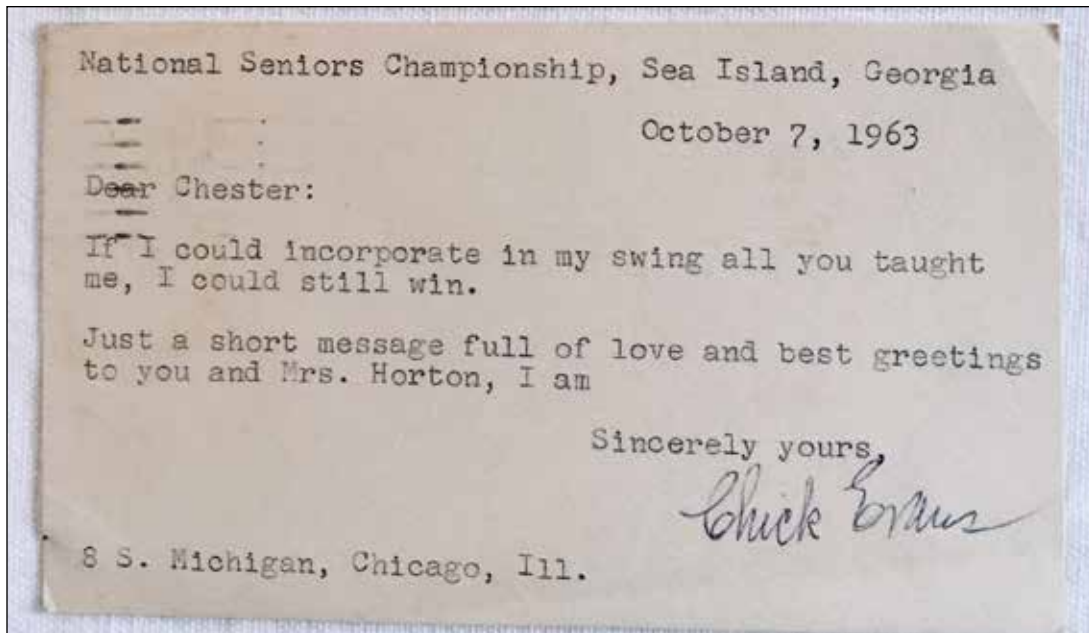 National Seniors Championship, Sea Island, Georgia
October 7, 1963
Dear Chester:
If I could incorporate in my swing all you taught
me, I could still win.
Just a short message full of love and best greetings
to you and Mrs. Horton, I am
Sincerely yours,
Chick Evans
8 S. Michigan, Chicago, Ill.